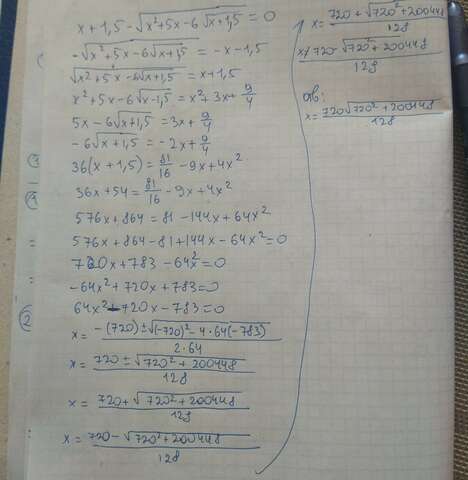 x + 1,5 - √(x² + 5x - 6√(x + 1,5)) = 0
-√(x² + 5x - 6√(x + 1,5)) = -x - 1,5
√(x² + 5x - 6√(x + 1,5)) = x + 1,5
x² + 5x - 6√(x - 1,5) = x² + 3x + 9/4
5x - 6√(x + 1,5) = 3x + 9/4
-6√(x + 1,5) = -2x + 9/4
36(x + 1,5) = 81/16 - 9x + 4x²
36x + 54 = 81/16 - 9x + 4x²
576x + 864 = 81 - 144x + 64x²
576x + 864 - 81 + 144x - 64x² = 0
720x + 783 - 64x² = 0
-64x² + 720x + 783 = 0
64x² - 720x - 783 = 0
x = (-(720) ± √((-720)² - 4·64(-783)))/(2·64)
x = (720 ± √(720² + 200448))/128
x = (720 + √(720² + 200448))/128
x = (720 - √(720² + 200448))/128
x = (720 + √(720² + 200448))/128
x ≠ (720 - √(720² + 200448))/128
отв:
x = (720√(720² + 200448))/128